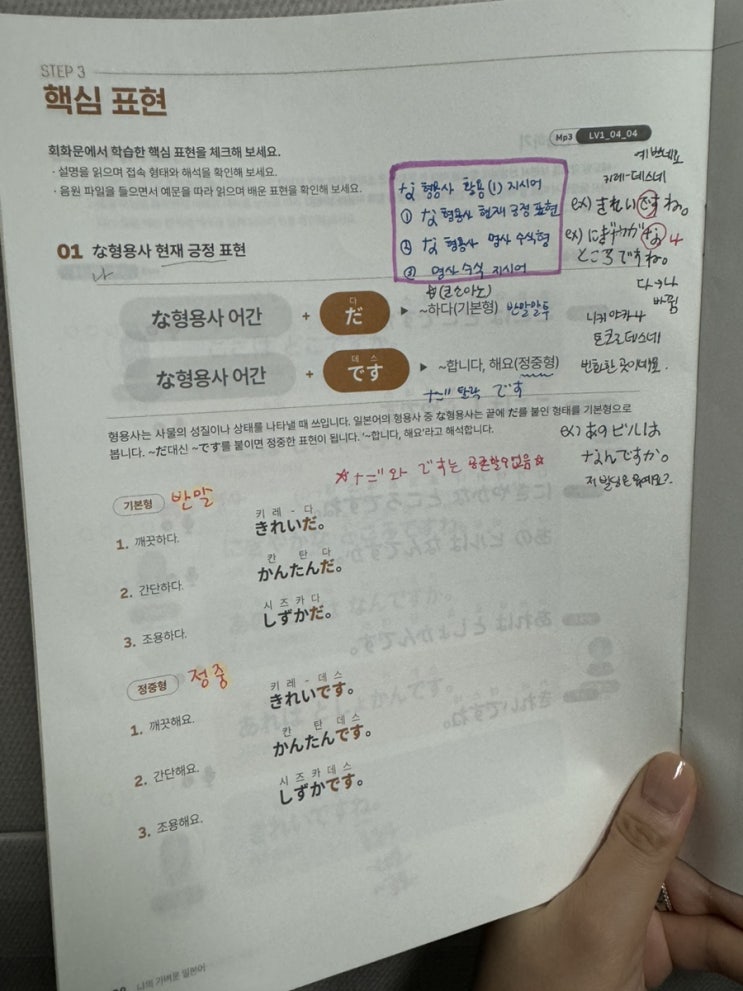 STEP 3
핵심 표현
Mp3 LV1_04_04
회화문에서 학습한 핵심 표현을 체크해 보세요.
· 설명을 읽으며 접속 형태와 해석을 확인해 보세요.
· 음원 파일을 들으면서 예문을 따라 읽으며 배운 표현을 확인해 보세요.
な 형용사 활용(1) 지시어
① な 형용사 현재 긍정 표현
② な 형용사 명사 수식형
③ 명사 수식 지시어
(코소아도)
예쁘네요
키레-데스네
ex) きれいですね。
ex) にぎやかな
ところですね。
다→나
바뀜
니기야카나
토코로데스네
번화한 곳이네요.
ex) あのビルは
なんですか。
저 빌딩은 뭐예요?
01 な형용사 현재 긍정 표현
나
な형용사 어간 + だ ▶ ~하다(기본형) 반말말투
다
な형용사 어간 + です ▶ ~합니다, 해요(정중형)
데스
だ 탈락 です
형용사는 사물의 성질이나 상태를 나타낼 때 쓰입니다. 일본어의 형용사 중 な형용사는 끝에 だ를 붙인 형태를 기본형으로
봅니다. ~だ대신 ~です를 붙이면 정중한 표현이 됩니다. '~합니다, 해요'라고 해석합니다.
☆だ와 です는 공존할 수 없음☆
기본형 반말
키 레 - 다
1. 깨끗하다. きれいだ。
칸 탄 다
2. 간단하다. かんたんだ。
시 즈 카 다
3. 조용하다. しずかだ。
정중형 정중
키 레 - 데 스
1. 깨끗해요. きれいです。
칸 탄 데 스
2. 간단해요. かんたんです。
시 즈 카 데 스
3. 조용해요. しずかです。
나의 가벼운 일본어